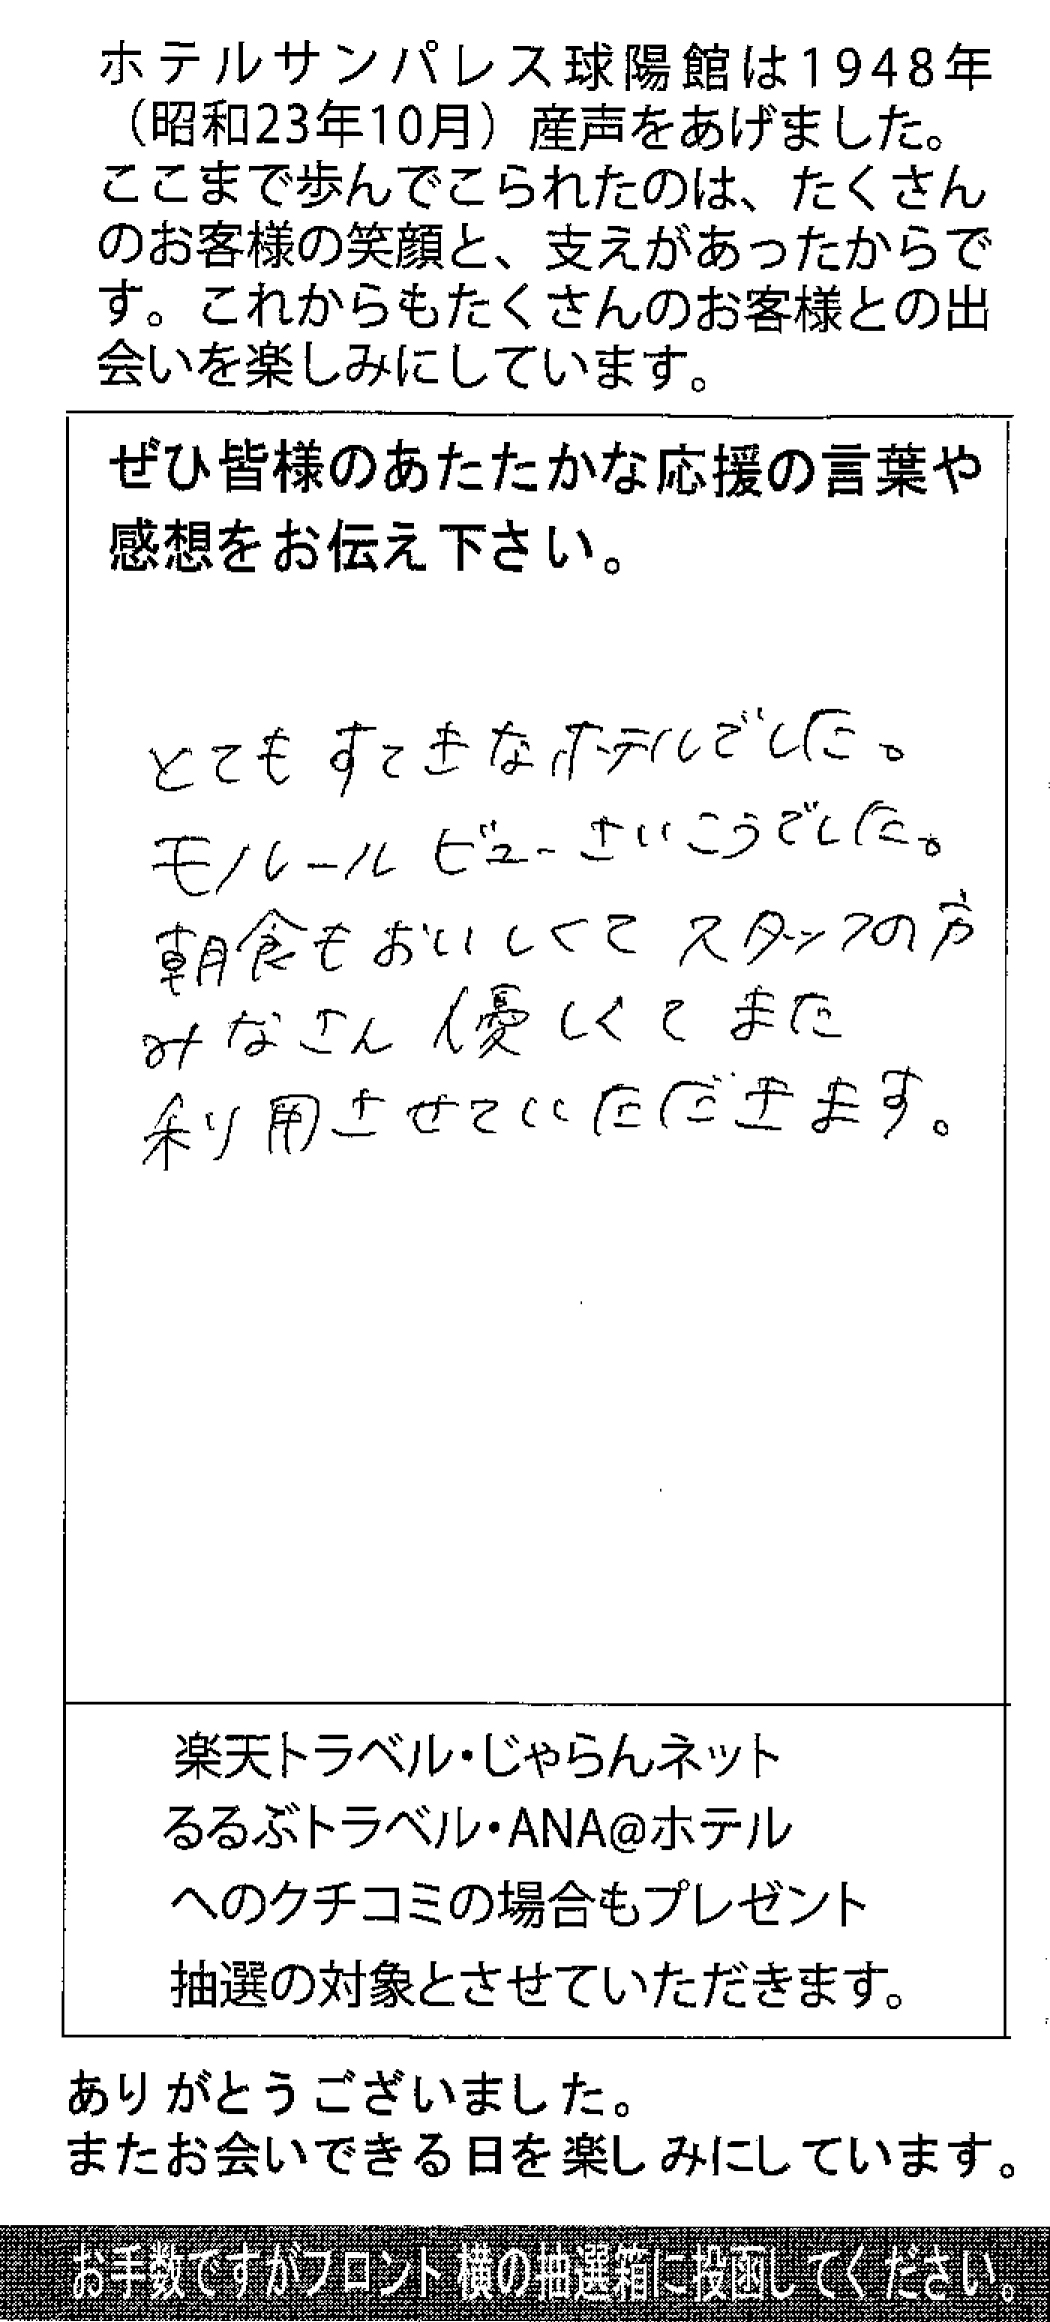 ホテルサンパレス球陽館は1948年
（昭和23年10月）産声をあげました。
ここまで歩んでこられたのは、たくさん
のお客様の笑顔と、支えがあったからで
す。これからもたくさんのお客様との出
会いを楽しみにしています。
ぜひ皆様のあたたかな応援の言葉や
感想をお伝え下さい。
とてもすてきなホテルでした。
モノレールビューさいこうでした。
朝食もおいしくてスタッフの方
みなさん優しくてまた
利用させていただきます。
楽天トラベル・じゃらんネット
るるぶトラベル・ANA@ホテル
へのクチコミの場合もプレゼント
抽選の対象とさせていただきます。
ありがとうございました。
またお会いできる日を楽しみにしています。
お手数ですがフロント横の抽選箱に投函してください。